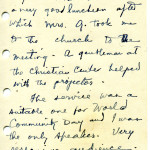 a very good luncheon after
which Mrs. G. took me
to the church to the
meeting. A gentleman at
the Christian Center helped
with the projector.
The service was a
suitable one for World
Community Day and I was
the only speaker. Very
audience